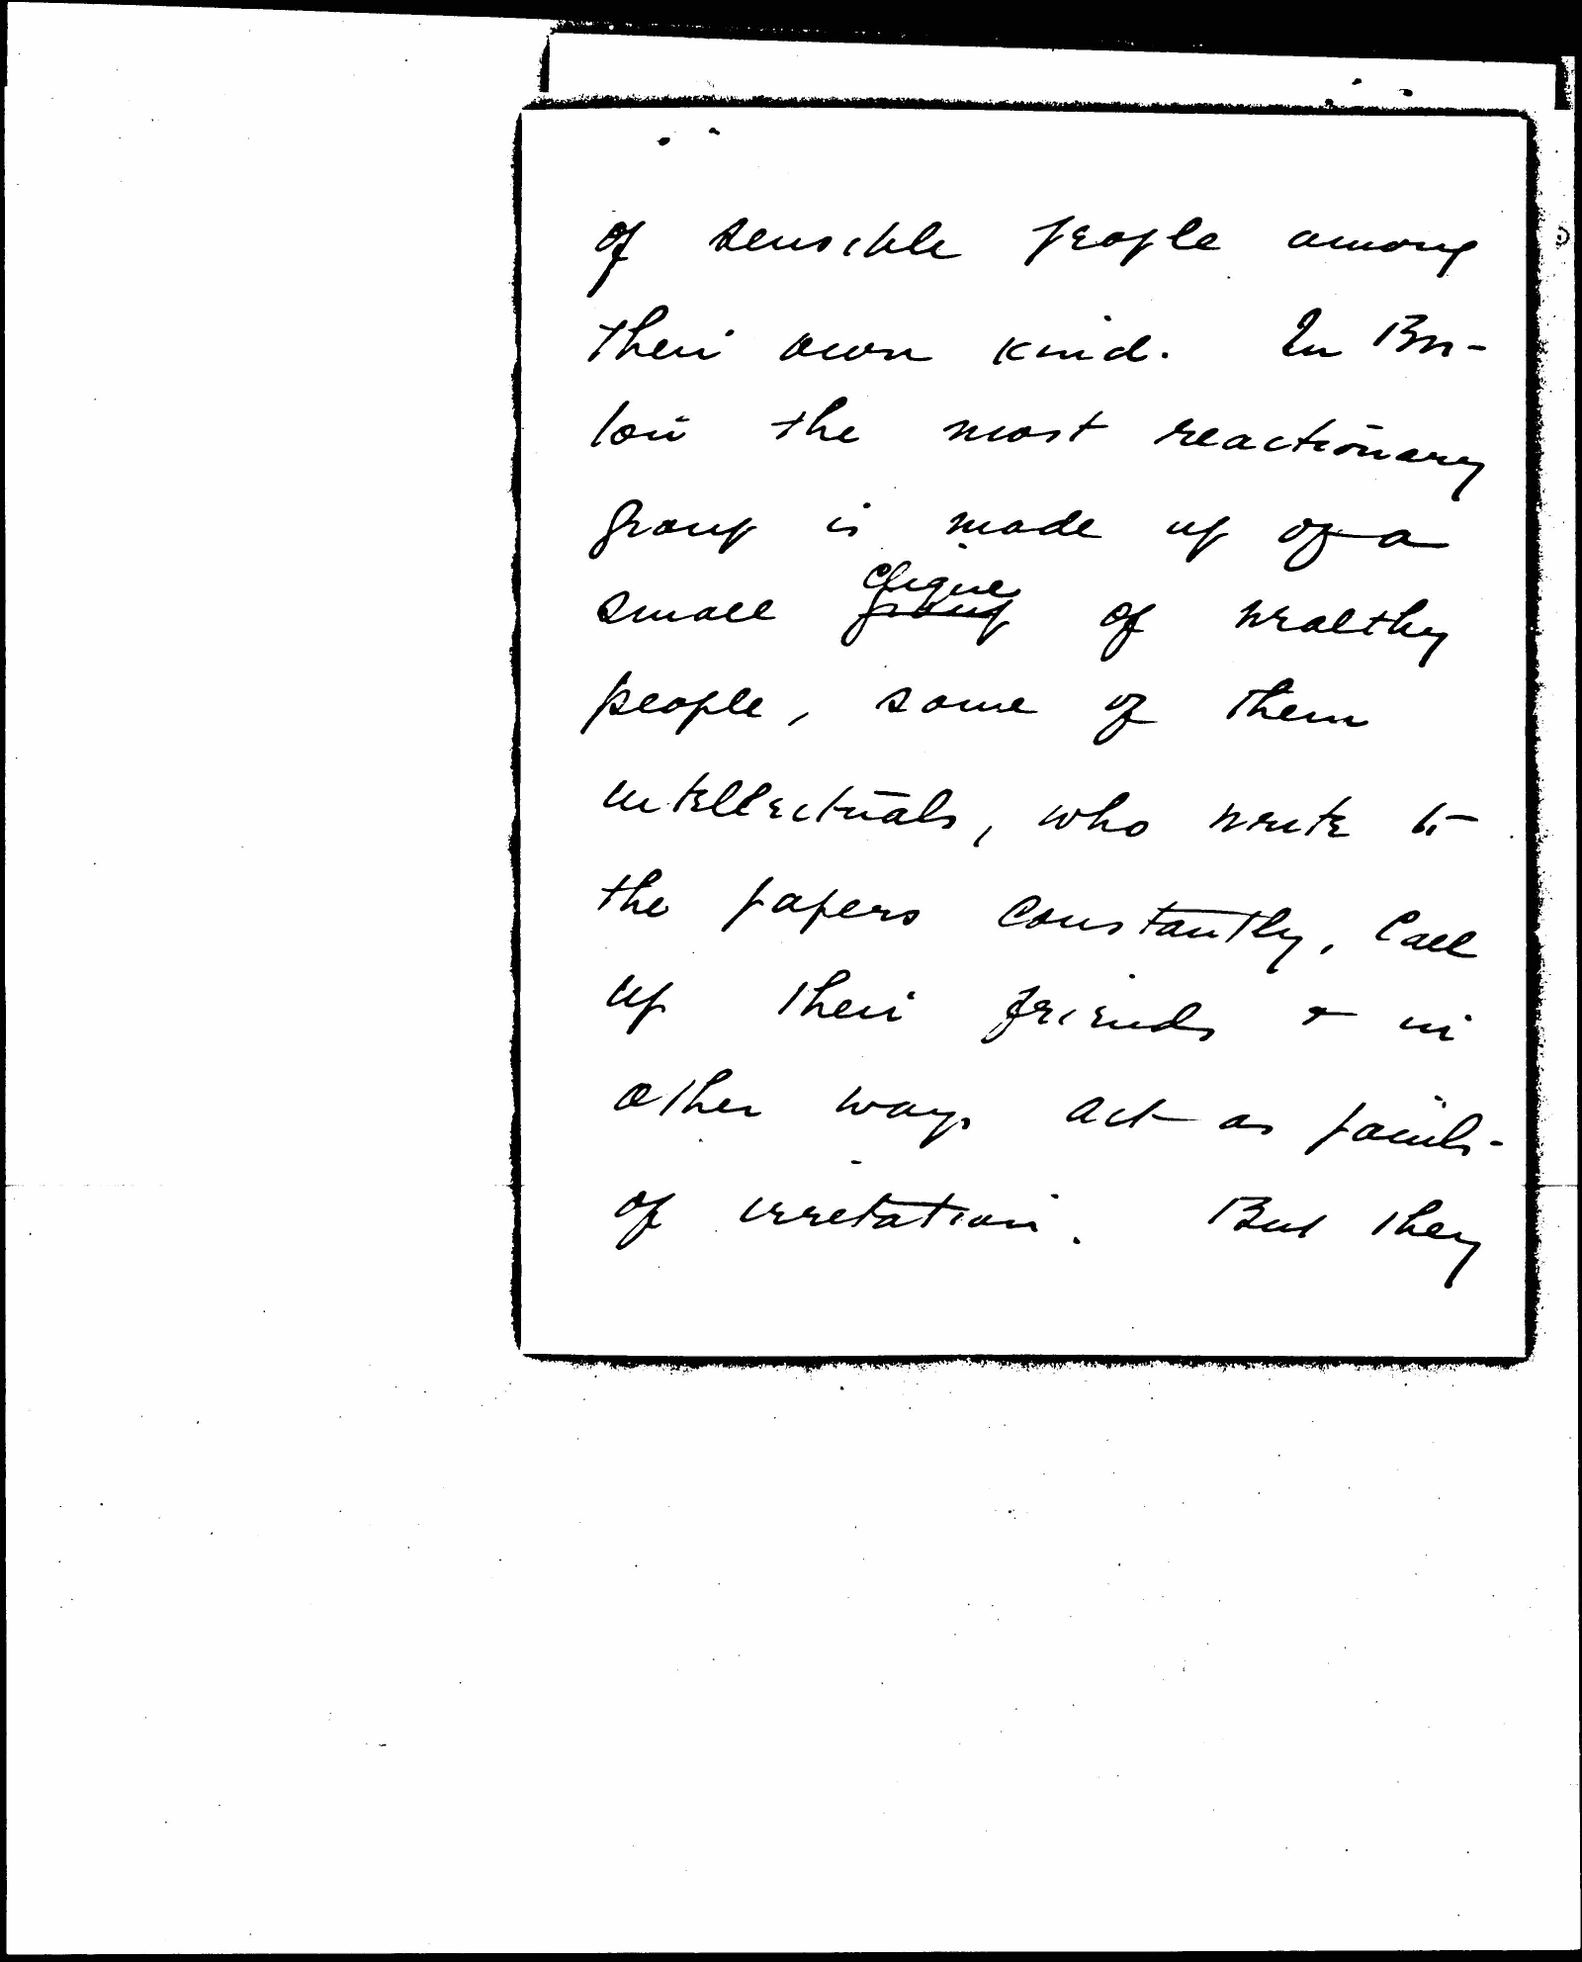 of sensible people among
their own kind. In Bos-
ton the most reactionary
group is made up of a
clique
small group of wealthy
people, some of them
intellectuals, who write to
the papers constantly, call
up their friends & in
other ways act as points
of irritation. But they